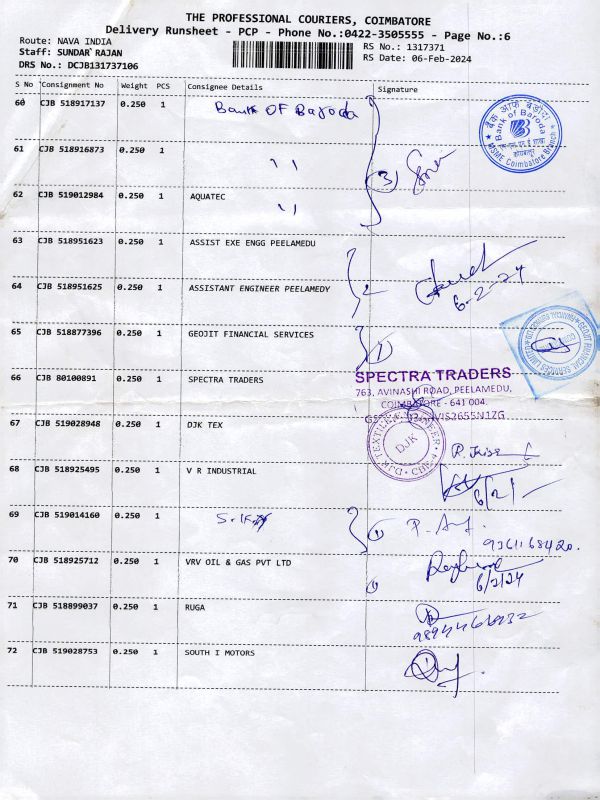 THE PROFESSIONAL COURIERS, COIMBATORE
Delivery Runsheet - PCP - Phone No.:0422-3505555 - Page No.:6
Route: NAVA INDIA
Staff: SUNDAR RAJAN
DRS No.: DCJB131737106
RS No.: 1317371
RS Date: 06-Feb-2024
S No Consignment No Weight PCS Consignee Details Signature
60 CJB 518917137 0.250 1 Bank OF Baroda
बैंक ऑफ़ बड़ौदा
Bank of Baroda
MSME Coimbatore Branch
61 CJB 518916873 0.250 1 ״
3
62 CJB 519012984 0.250 1 AQUATEC
״
63 CJB 518951623 0.250 1 ASSIST EXE ENGG PEELAMEDU
64 CJB 518951625 0.250 1 ASSISTANT ENGINEER PEELAMEDY
2
6-2-24
65 CJB 518877396 0.250 1 GEOJIT FINANCIAL SERVICES
1
GEOJIT FINANCIAL SERVICES LIMITED
66 CJB 80100891 0.250 1 SPECTRA TRADERS
SPECTRA TRADERS
763, AVINASHI ROAD, PEELAMEDU,
COIMBATORE - 641 004.
67 CJB 519028948 0.250 1 DJK TEX
DJK
68 CJB 518925495 0.250 1 V R INDUSTRIAL
6/2/
69 CJB 519014160 0.250 1
1
9361168420.
70 CJB 518925712 0.250 1 VRV OIL & GAS PVT LTD
6/2/24
71 CJB 518899037 0.250 1 RUGA
72 CJB 519028753 0.250 1 SOUTH I MOTORS